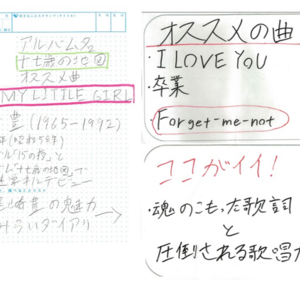 アルバム名
十七歳の地図
オススメ曲
MY LITTLE GIRL
豊(1965-1992)
「15の夜」と
「十七歳の地図」で
デビュー
尾崎豊の魅力
オススメの曲
・I LOVE YOU
・卒業
・Forget-me-not
ココがイイ!
・魂のこもった歌詞
と
圧倒される歌唱力